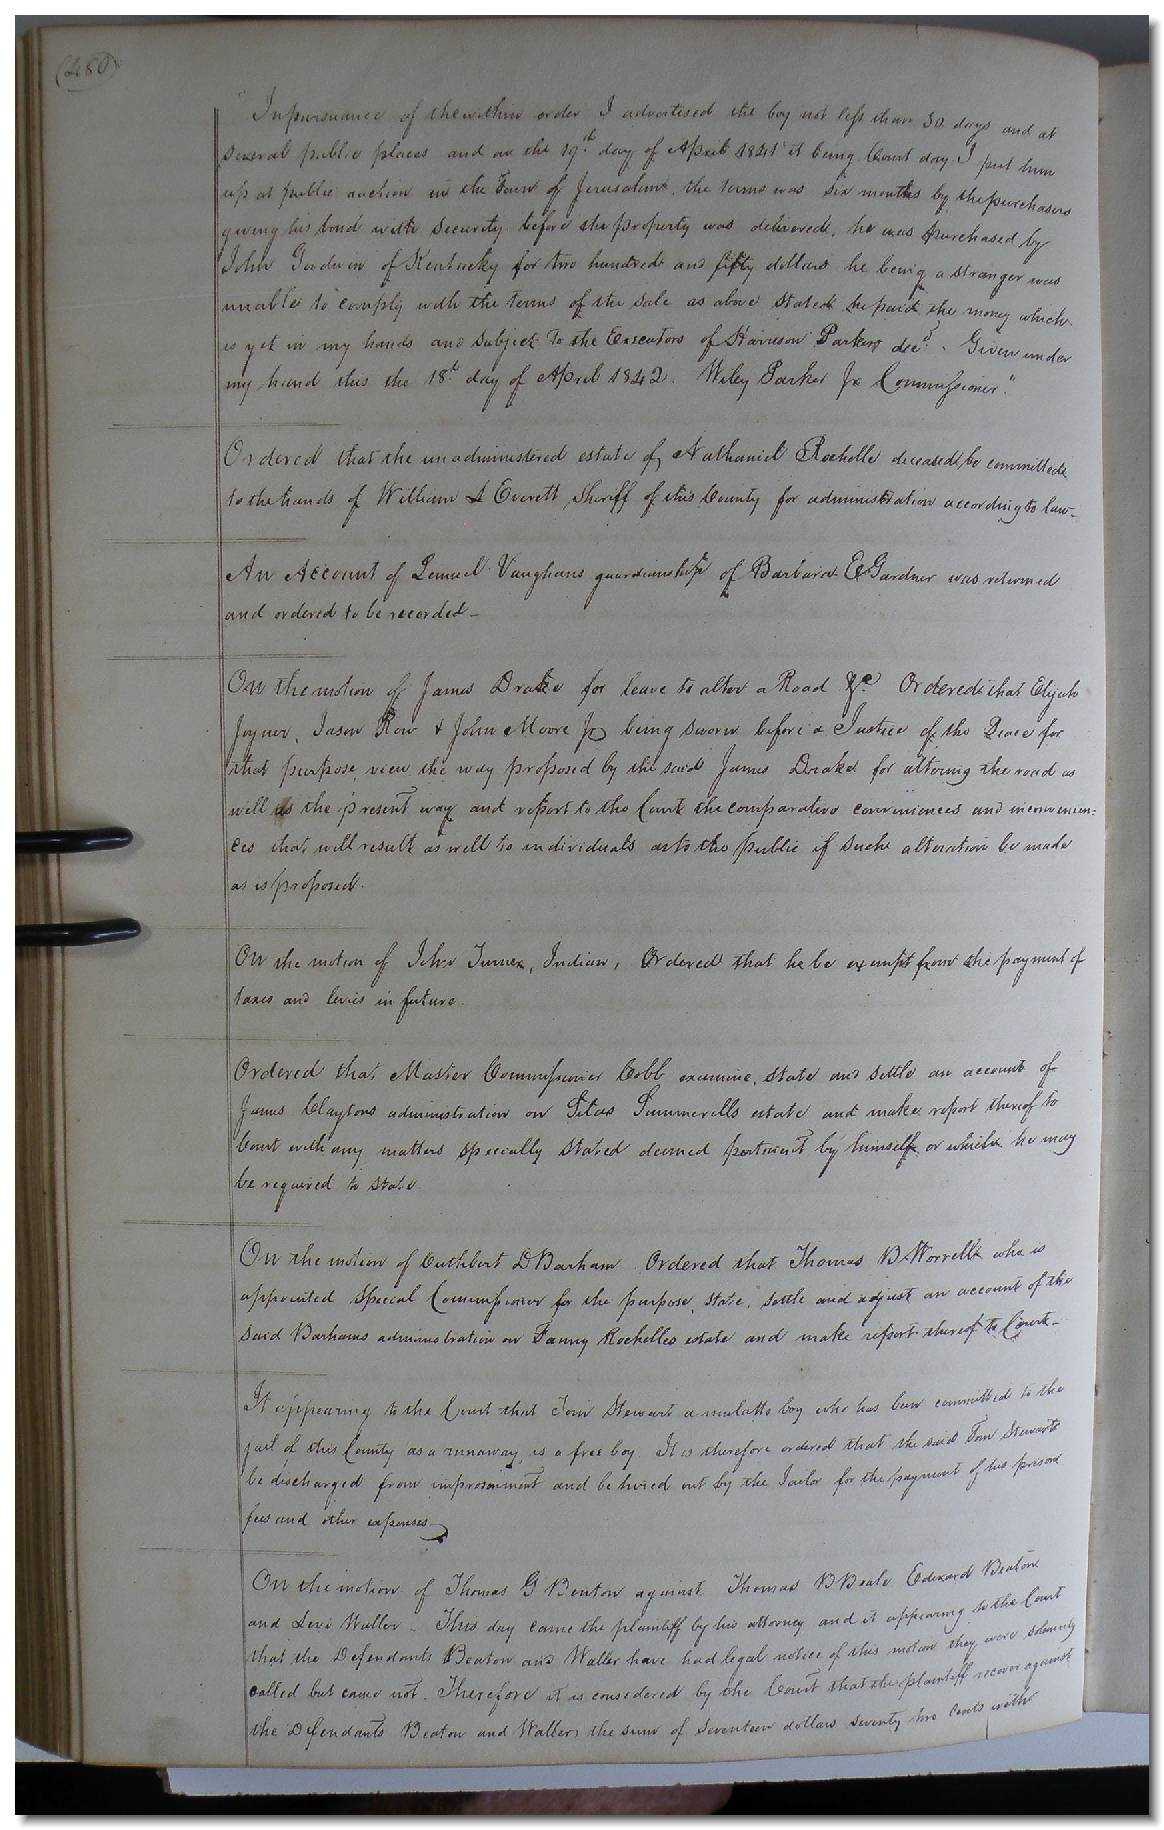 (480)
"In pursuance of the within order I advertised the boy not less than 30 days and at
several public places and on the 19th day of April 1841 it being Court day I put him
up at public auction in the Town of Jerusalem, the terms was six months by the purchasers
giving his bond with security before the property was delivered, he was purchased by
John Goodwin of Kentucky for two hundred and fifty dollars he being a stranger was
unable to comply with the terms of the sale as above stated he paid the money which
is yet in my hands and subject to the Executors of Harrison Parker decd. Given under
my hand this the 18th day of April 1842. Wiley Parker Jr Commissioner."
Ordered that the unadministered estate of Nathaniel Rochelle deceased be committed
to the hands of William L Everett Sheriff of this County for administration according to law-
An Account of Lemuel Vaughans guardianship of Barbara E Gardner was returned
and ordered to be recorded-
On the motion of James Drake for leave to alter a Road &c. Ordered that Elijah
Joyner, Jason Row & John Moore Jr being sworn before a Justice of the Peace for
that purpose, view the way proposed by the said James Drake for altering the road as
well as the present way and report to the Court the comparative conveniences and inconvenien-
ces that will result as well to individuals as to the public if such alteration be made
as is proposed.
On the motion of John Turner, Indian, Ordered that he be exempt from the payment of
taxes and levies in future.
Ordered that Master Commissioner Cobb examine, state and settle an account of
James Claytons administration on Silas Summerells estate and make report thereof to
Court with any matters specially stated deemed pertinent by himself or which he may
be required to state
On the motion of Cuthbert D Barham Ordered that Thomas B Worrell who is
appointed Special Commissioner for the purpose, state, settle and adjust an account of the
said Barhams administration on Fanny Rochelles estate and make report thereof to Court-
It appearing to the Court that Tom Stewart a mulatto boy who has been committed to the
jail of this County as a runaway, is a free boy. It is therefore ordered that the said Tom Stewart
be discharged from imprisonment and be hired out by the Jailor for the payment of his prison
fees and other expenses
On the motion of Thomas G Benton against Thomas B Beale Edward Beaton
and Levi Waller - This day came the plaintiff by his attorney and it appearing to the Court
that the Defendants Beaton and Waller have had legal notice of this motion they were solemnly
called but came not. Therefore it is considered by the Court that the plaintiff recover against
the Defendants Beaton and Waller, the sum of seventeen dollars seventy two cents with